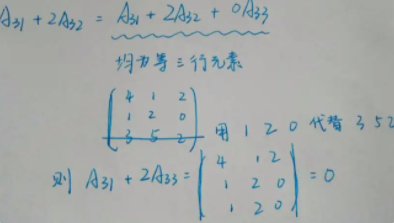 A31 + 2A32 = A31 + 2A32 + 0A33
均为第三行元素
4 1 2
1 2 0
3 5 2 用 1 2 0 代替 3 5 2
则 A31 + 2A33 = | 4 1 2 | = 0
1 2 0
1 2 0